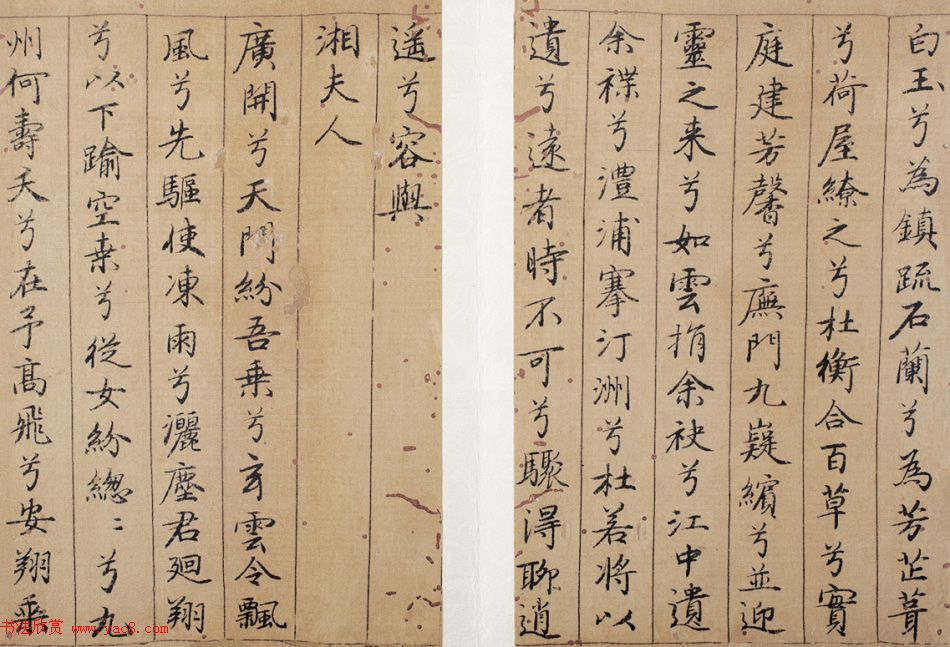 白玉兮為鎮疏石蘭兮為芳芷葺
兮荷屋繚之兮杜衡合百草兮實
庭建芳馨兮廡門九嶷繽兮並迎
靈之来兮如雲捐余袂兮江中遺
余褋兮澧浦搴汀洲兮杜若將以
遺兮遠者時不可兮驟得聊逍
遥兮容與
湘夫人
廣開兮天門紛吾乗兮玄雲令飄
風兮先驅使凍雨兮灑塵君迴翔
兮以下踰空桒兮從女紛緫〻兮九
州何壽夭兮在予髙飛兮安翔乗
书法欣赏 www.yac8.com